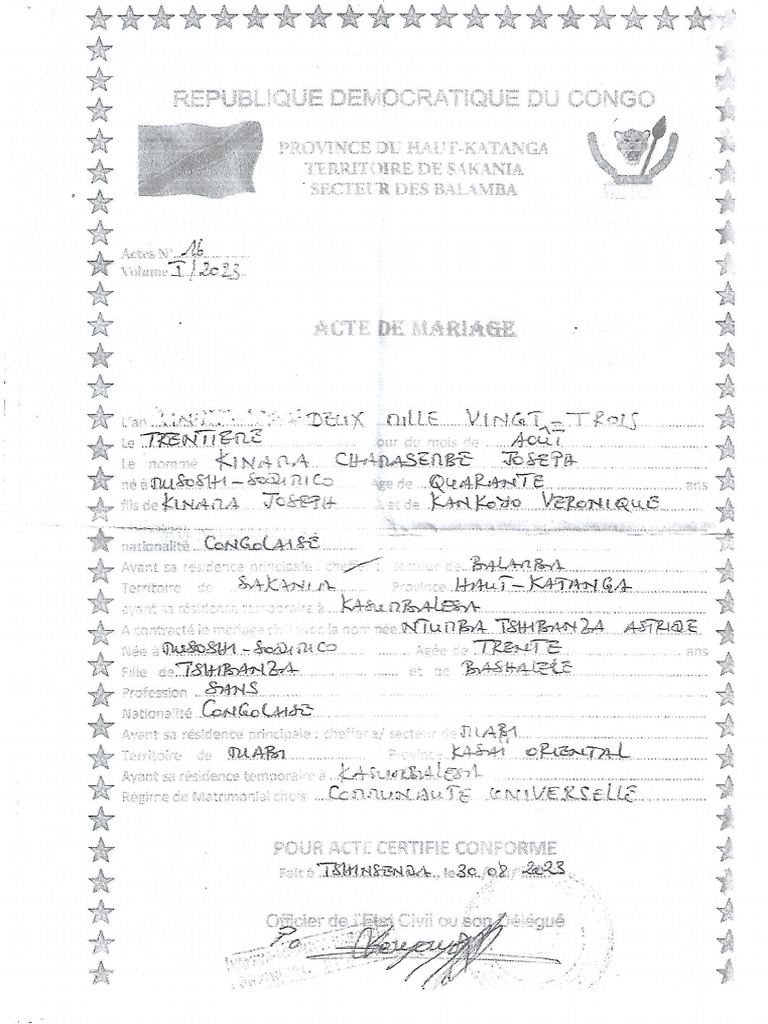 REPUBLIQUE DEMOCRATIQUE DU CONGO
PROVINCE DU HAUT-KATANGA
TERRITOIRE DE SAKANIA
SECTEUR DES BALAMBA
Actes N° 16
Volume I/2023
ACTE DE MARIAGE
L'an DEUX MILLE VINGT-TROIS
Le TRENTIEME jour du mois de AOÛT
Le nommé KINAMA CHAMASEMBE JOSEPH
né à MUSOSHI-SODIMICO Age de QUARANTE ans
fils de KINAMA JOSEPH et de VERONIQUE
nationalité CONGOLAISE
Ayant sa résidence principale : secteur de BALAMBA
Territoire de SAKANIA Province HAUT-KATANGA
ayant sa résidence temporaire à KASUMBALESA
A contracté le mariage civil avec la nommée NTUMBA TSHIBANZA ASTRIDE
Née à MUSOSHI-SODIMICO Agée de TRENTE ans
Fille de TSHIBANZA et de
Profession SANS
Nationalité CONGOLAISE
Ayant sa résidence principale : secteur de MIABI
Territoire de MIABI Province KASAÏ ORIENTAL
Ayant sa résidence temporaire à KASUMBALESA
Régime de Matrimonial choisi COMMUNAUTE UNIVERSELLE
POUR ACTE CERTIFIE CONFORME
Fait à TSHINSENDA, le 30/08/2023
Officier de l'Etat Civil ou son Délégué
Po